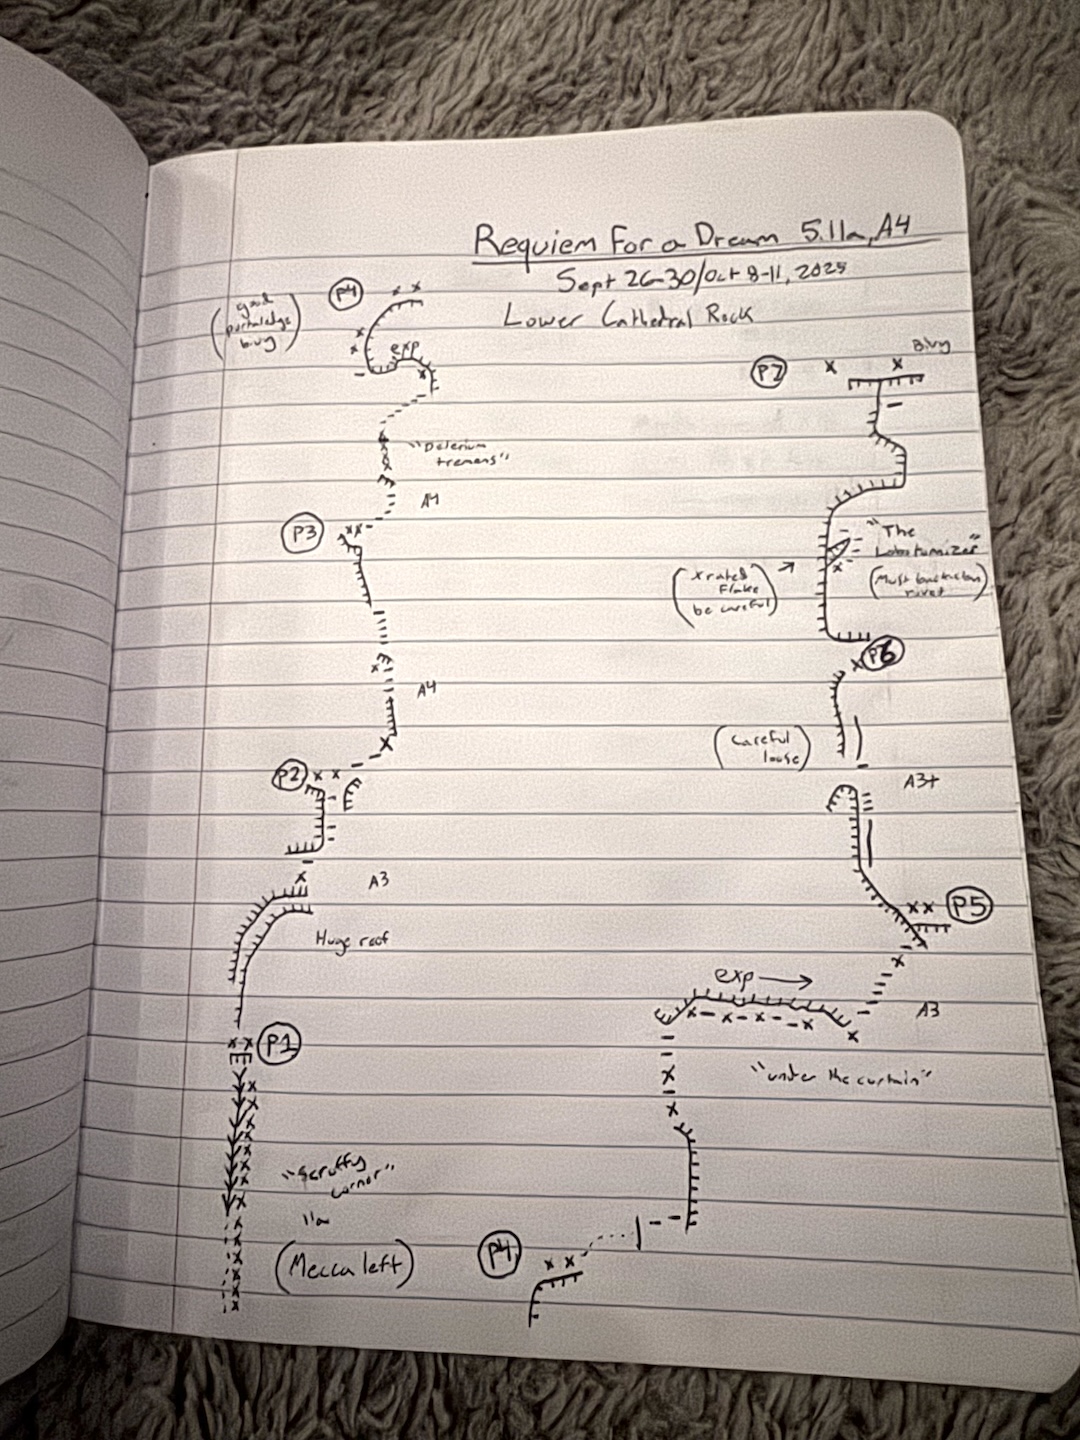 Requiem For a Dream 5.11a, A4
Sept 26-30/Oct 8-11, 2025
Lower Cathedral Rock
P4
(good
portaledge
bivy)
exp
"Delerium
tremens"
A4
P3
A4
P2
A3
Huge roof
P1
"Scruffy
corner"
11a
(Mecca left)
P7
Bivy
"The
Lobotomizer"
(Must
rivet)
(X rated
Flake
be careful)
P6
(Careful
loose)
A3+
P5
exp
A3
"under the curtain"
P4